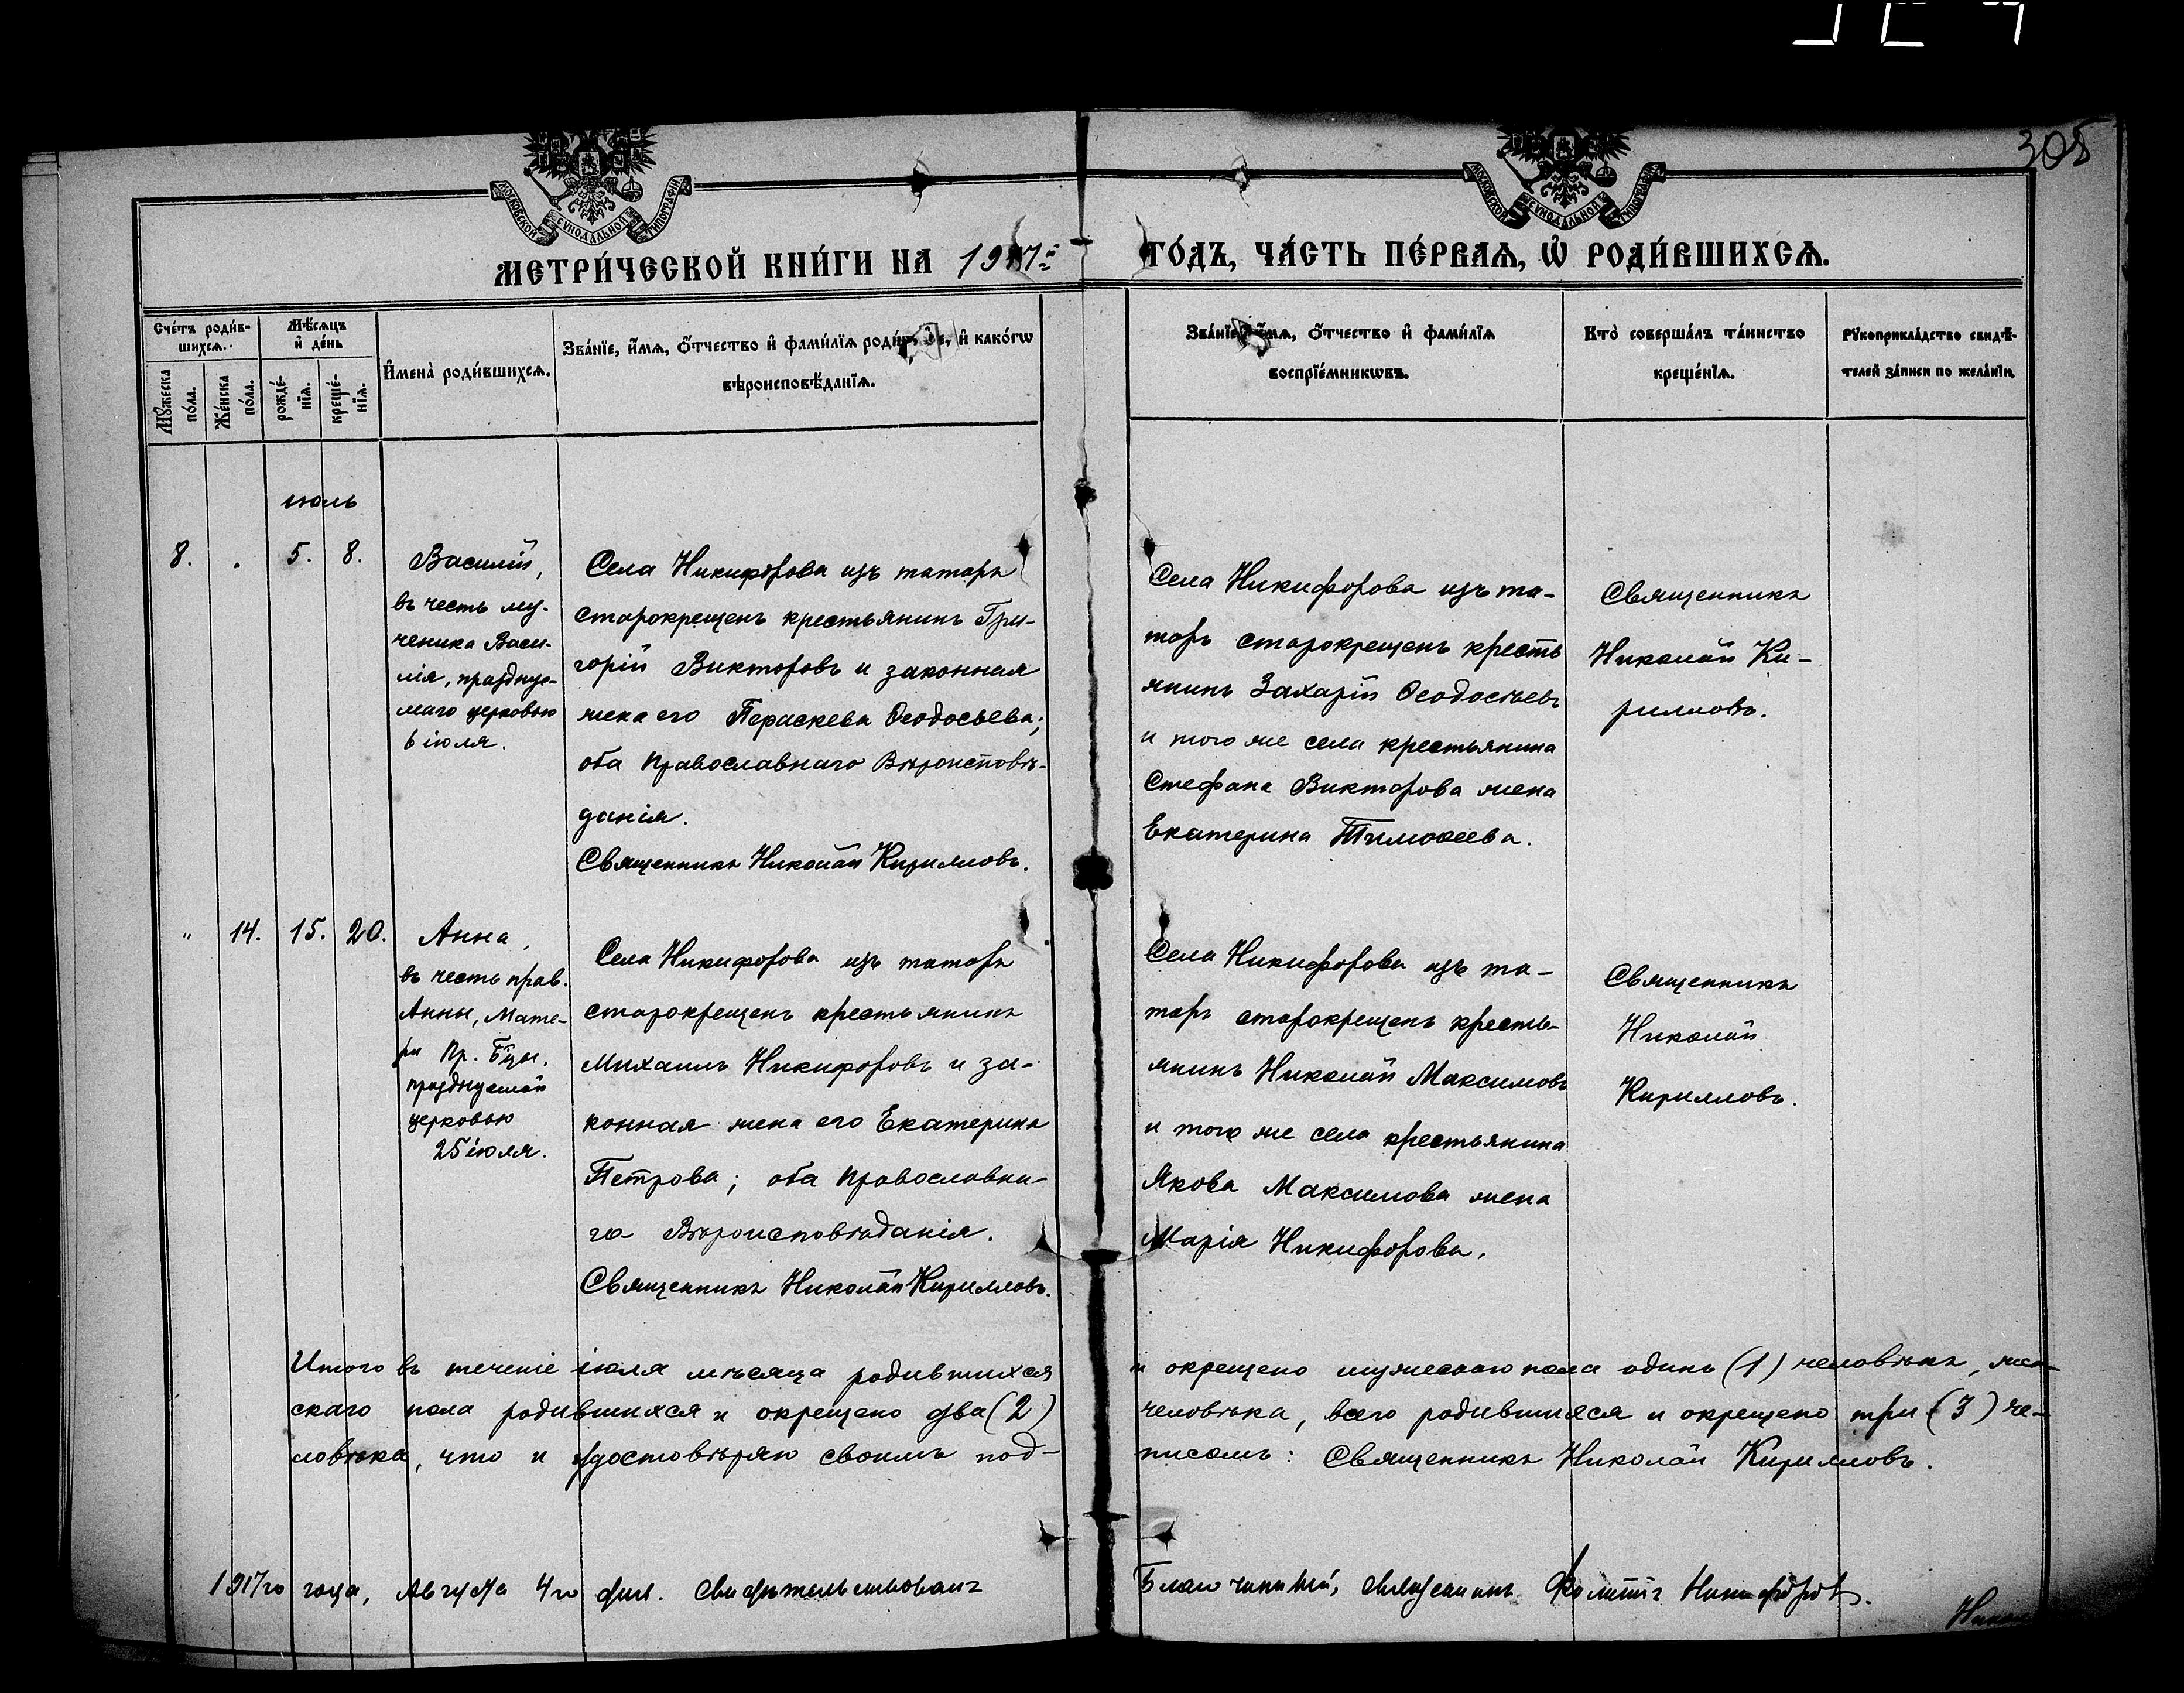 305
МОСКОВСКОЙ СѴНОДАЛЬНОЙ ТИПОГРАФІИ
МОСКОВСКОЙ СѴНОДАЛЬНОЙ ТИПОГРАФІИ
МЕТРИ́ЧЕСКОЙ КНИ́ГИ НА 1917й ГО́ДЪ, ЧА́СТЬ ПЕ́РВАѦ, Ѡ҆ РОДИ́ВШИХСѦ.
Сче́тъ роди́в-
шихсѧ.
Мѣ́сѧцъ
и҆ де́нь
Мꙋ́жеска
по́ла.
Же́нска
по́ла.
рожде́-
нїѧ.
креще́-
нїѧ.
И҆мена̀ роди́вшихсѧ.
Зва́нїе, и҆́мѧ, ѻ҆́тчество и҆ фами́лїѧ и҆ како́гѡ
вѣроисповѣ́данїѧ.
Зва́нїе, и҆́мѧ, ѻ҆́тчество и҆ фами́лїѧ
воспрїе́мникѡвъ.
Кто̀ соверша́лъ та́инство
креще́нїѧ.
Рꙋкоприкла́дство свидѣ́-
телей за́писи по жела́нїю.
июль
8. . 5. 8.
Василій,
въ честь му-
ченика Васи-
лія, праздние-
маго церковью
6 іюля.
Села Никифорова изъ татаръ
старокрещенъ крестьянинъ Гри-
горій Викторовъ и законная
жена его Параскева Ѳеодосьева;
оба Православнаго Вѣроисповѣ-
данія.
Священникъ Николай Кирилловъ.
Села Никифорова изъ та-
таръ старокрещенъ кресть
янинъ Захарій Ѳеодосіевъ
и того же села крестьянина
Стефана Викторова жена
Екатерина Тимоѳеева.
Священникъ
Николай Ки-
рилловъ.
" 14. 15. 20.
Анна,
въ честь прав.
Анны, Мате-
ри Пр. Б̃цы,
празднуемой
церковью
25 іюля.
Села Никифорова изъ татаръ
старокрещенъ крестьянинъ
Михаилъ Никифоровъ и за-
конная жена его Екатерина
Петрова; оба Православна-
го Вѣроисповѣданія.
Священникъ Николай Кирилловъ.
Села Никифорова изъ та-
таръ старокрещенъ кресть-
янинъ Николай Максимовъ
и того же села крестьянина
Якова Максимова жена
Марія Никифорова.
Священникъ
Николай
Кирилловъ.
Итого въ теченіе іюля мѣсяца родившихся и окрещено мужескаго пола одинъ (1) человѣкъ, жен-
скаго пола родившихся и окрещено два (2) человѣка, всего родившихся и окрещено три (3) че-
ловѣка, что и удостовѣряю своимъ под- писомъ: Священникъ Николай Кирилловъ.
1917го года, Августа 4го дня. Свидѣтельствовалъ Благочинный, священникъ Никифоровъ.